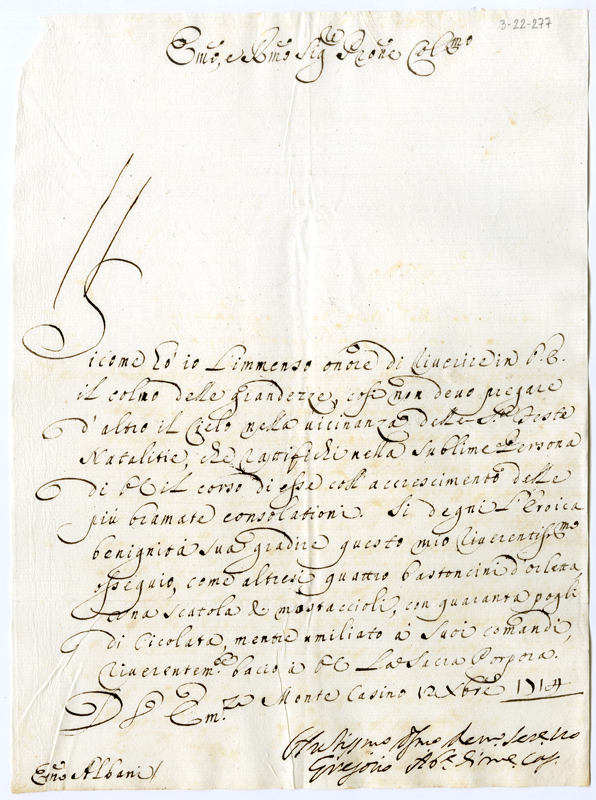 3-22-277
Emo, e Rmo Sig.re Prone Colmo
Sicome hò io L'immenso onore di riverire in V.E.
il colmo delle grandezze, così non devo pregare
d'altro il Cielo nella vicinanza delle S.te Feste
Natalitie, che ratifichi nella sublime Persona
di VE il corso di esse coll accrescimento delle
più bramate consolationi. Si degni L'Eroica
benignità sua gradire questo mio riverentiss.mo
ossequio, come altresi quattro bastoncini d'
una scatola di mostaccioli, con quaranta pogli
di Cicolata, mentre umiliato à suoi comandi,
riverentem.te bacio à VE La Sacra Porpora.
D V Em.za Monte Casino 12 Xbre 1714
Gregorio Ab.e
Emo Albani